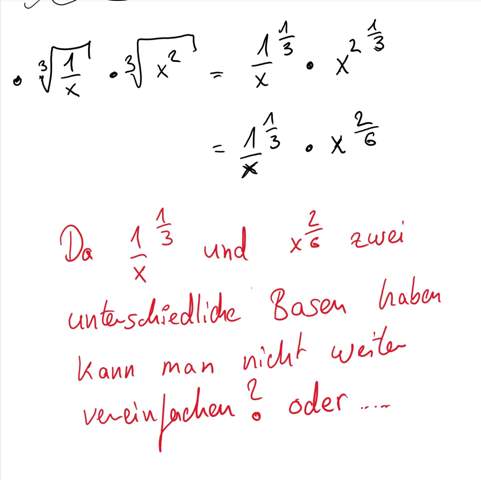 • ∛(1/x) • ∛(x²) = 1/x^(1/3) • x^2^(1/3)
= 1/x^(1/3) • x^(2/6)
Da 1/x^(1/3) und x^(2/6) zwei
unterschiedliche Basen haben
kann man nicht weiter
vereinfachen? oder ....